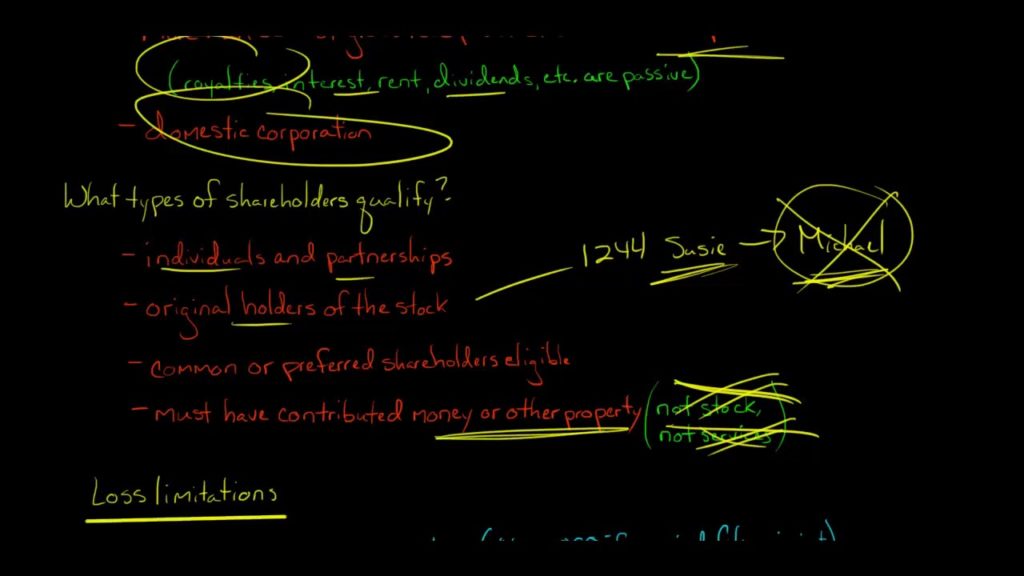 (royalties, interest, rent, dividends, etc. are passive)
- domestic corporation
What types of shareholders qualify?
- individuals and partnerships
1244 Susie → Michael
- original holders of the stock
- common or preferred shareholders eligible
- must have contributed money or other property (not stock,
not services)
Loss limitations